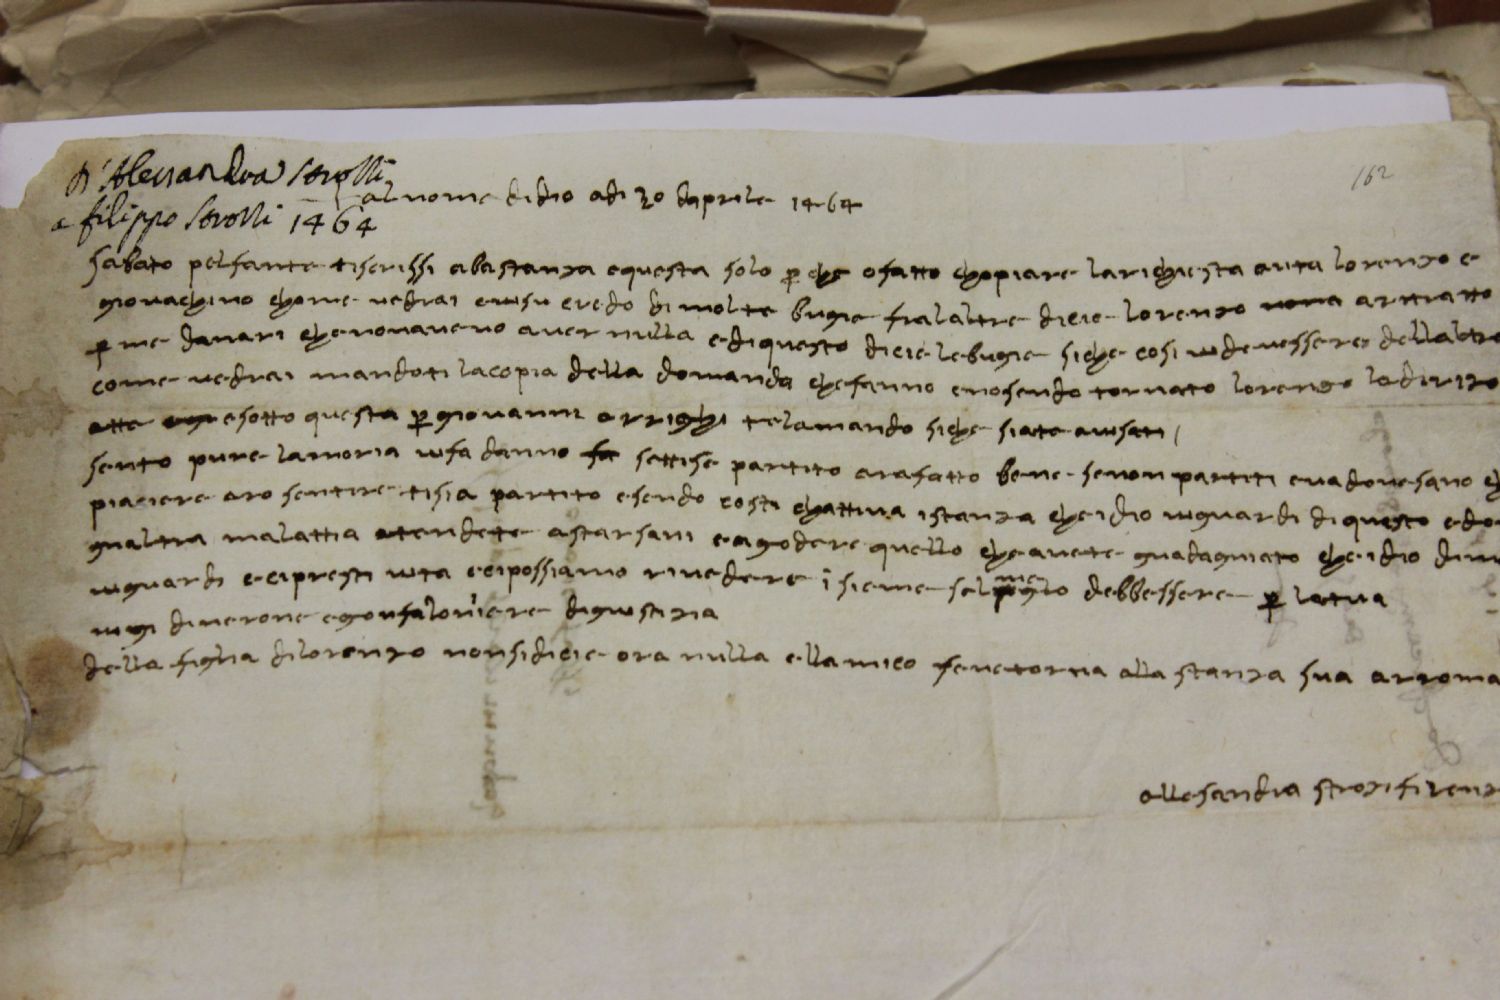 d'Alessandra Strozzi
a filippo Strozzi 1464
162
al nome di dio adi 20 daprile 1464
Sabato pelfante tiscrissi abastanza equesta solo p che ofatto chopiare larichiesta auta lorenzo e
giovachino chome vedrai evisu credo di molte bugie fralaltre dicie lorenzo arttratto
p me danari chenonaveno aver nulla ediquesto dicie lebugie siche cosi videvessere dellaltre
come vedrai mandoti lacopia della domanda chefanno enosendo tornato lorenzo ladirizo
esotto questa p giovanni arrighi telamando siche siate avisati
sento pure lamoria vifa danno settise partito arafatto bene senon partiti evadovesano
piaciere aro sentire tisia partito esendo costi chattiva istanza cheidio viguardi di questo edo
gnaltra malattia atendete astarsani eagodere quello cheavete guadagniato cheidio
viguardi ecipresti vita ecipossiamo rivedere isieme debbessere p latua
di nerone egonfaloniere digiustizia
della figlia dilorenzo nonsidicie ora nulla ellamico senetorna alla stanza sua arroma
allesandra strozi firenz